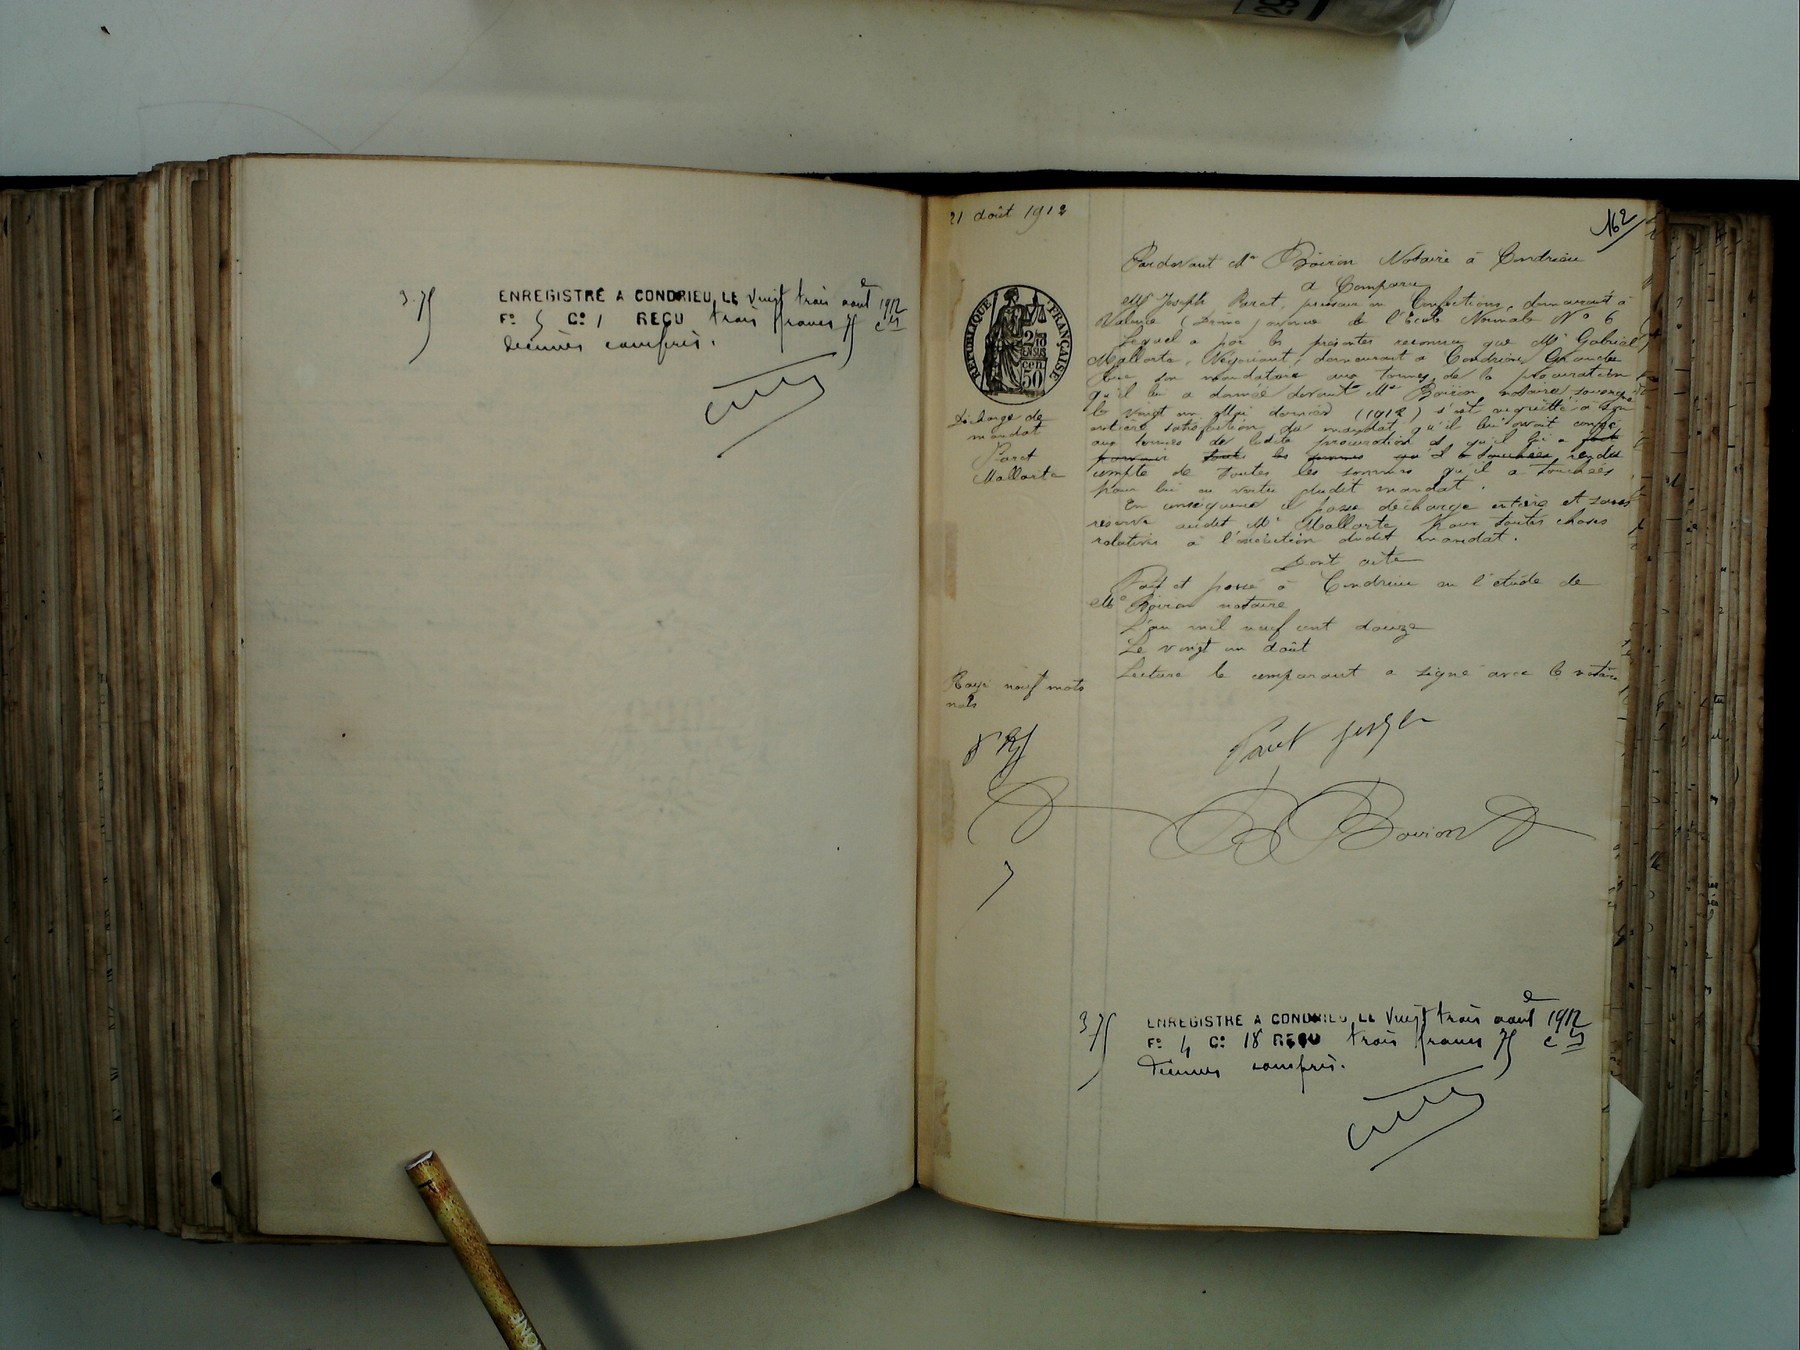 3.75
ENREGISTRÉ A CONDRIEU, LE vingt trois août 1912
Fº 5 Cº 1 REÇU trois francs 75 ces
décimes compris.
21 Août 1912
162
Pardevant Me Boiron Notaire à Condrieu
a Comparu
Mr Joseph Paret, en Confections, demeurant à
Valence (Drôme) avenue de l'École Normale No 6
Lequel a par les présentes reconnu que Mr Gabriel
Mallarte, Négociant, demeurant à Condrieu, Grande
Rue son mandataire aux termes de la procuration
qu'il lui a donnée devant Me Boiron notaire soussigné
le vingt un Mai dernier (1912) s'est acquitté à son
entière satisfaction du mandat qu'il lui avait confié
aux termes de ladite procuration et qu'il lui a fait
toutes les sommes qu'il a touchées rendu
compte de toutes les sommes qu'il a touchées
pour lui en vertu dudit mandat.
En conséquence il passe décharge entière et sans
réserve audit Mr Mallarte pour toutes choses
relatives à l'exécution dudit mandat.
Dont acte
Fait et passé à Condrieu en l'étude de
Me Boiron notaire
L'an mil neuf cent douze
Le vingt un Août
Lecture le comparant a signé avec le notaire
REPUBLIQUE FRANÇAISE
2/10 EN SUS
50 cen
Décharge de
mandat
Paret
Mallarte
Rayé neuf mots
nuls
Paret Joseph
Boiron
3.75
ENREGISTRÉ A CONDRIEU, LE vingt trois août 1912
Fº 4 Cº 18 REÇU trois francs 75 ces
décimes compris.